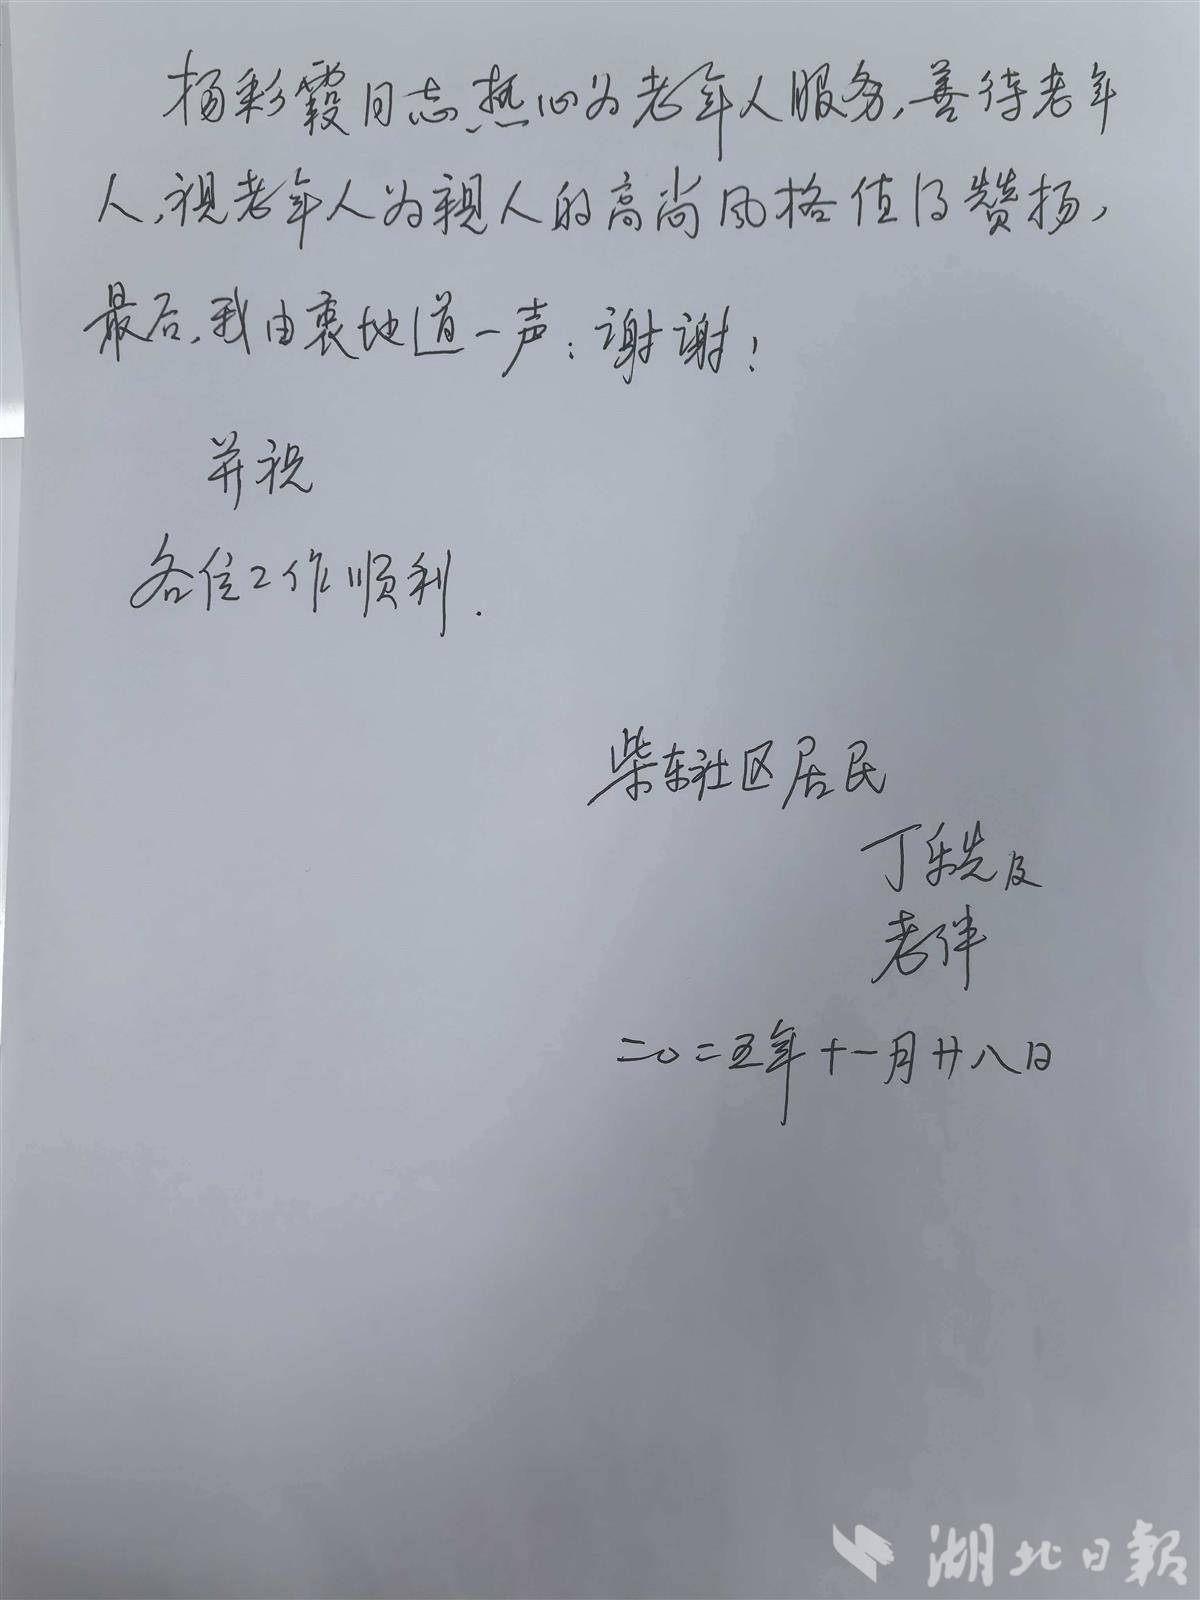 杨彩霞同志热心为老年人服务，善待老年
人，视老年人为亲人的高尚风格值得赞扬，
最后，我由衷地道一声：谢谢！
并祝
各位工作顺利.
柴东社区居民
丁乐先及
老伴
二〇二五年十一月廿八日
湖北日報